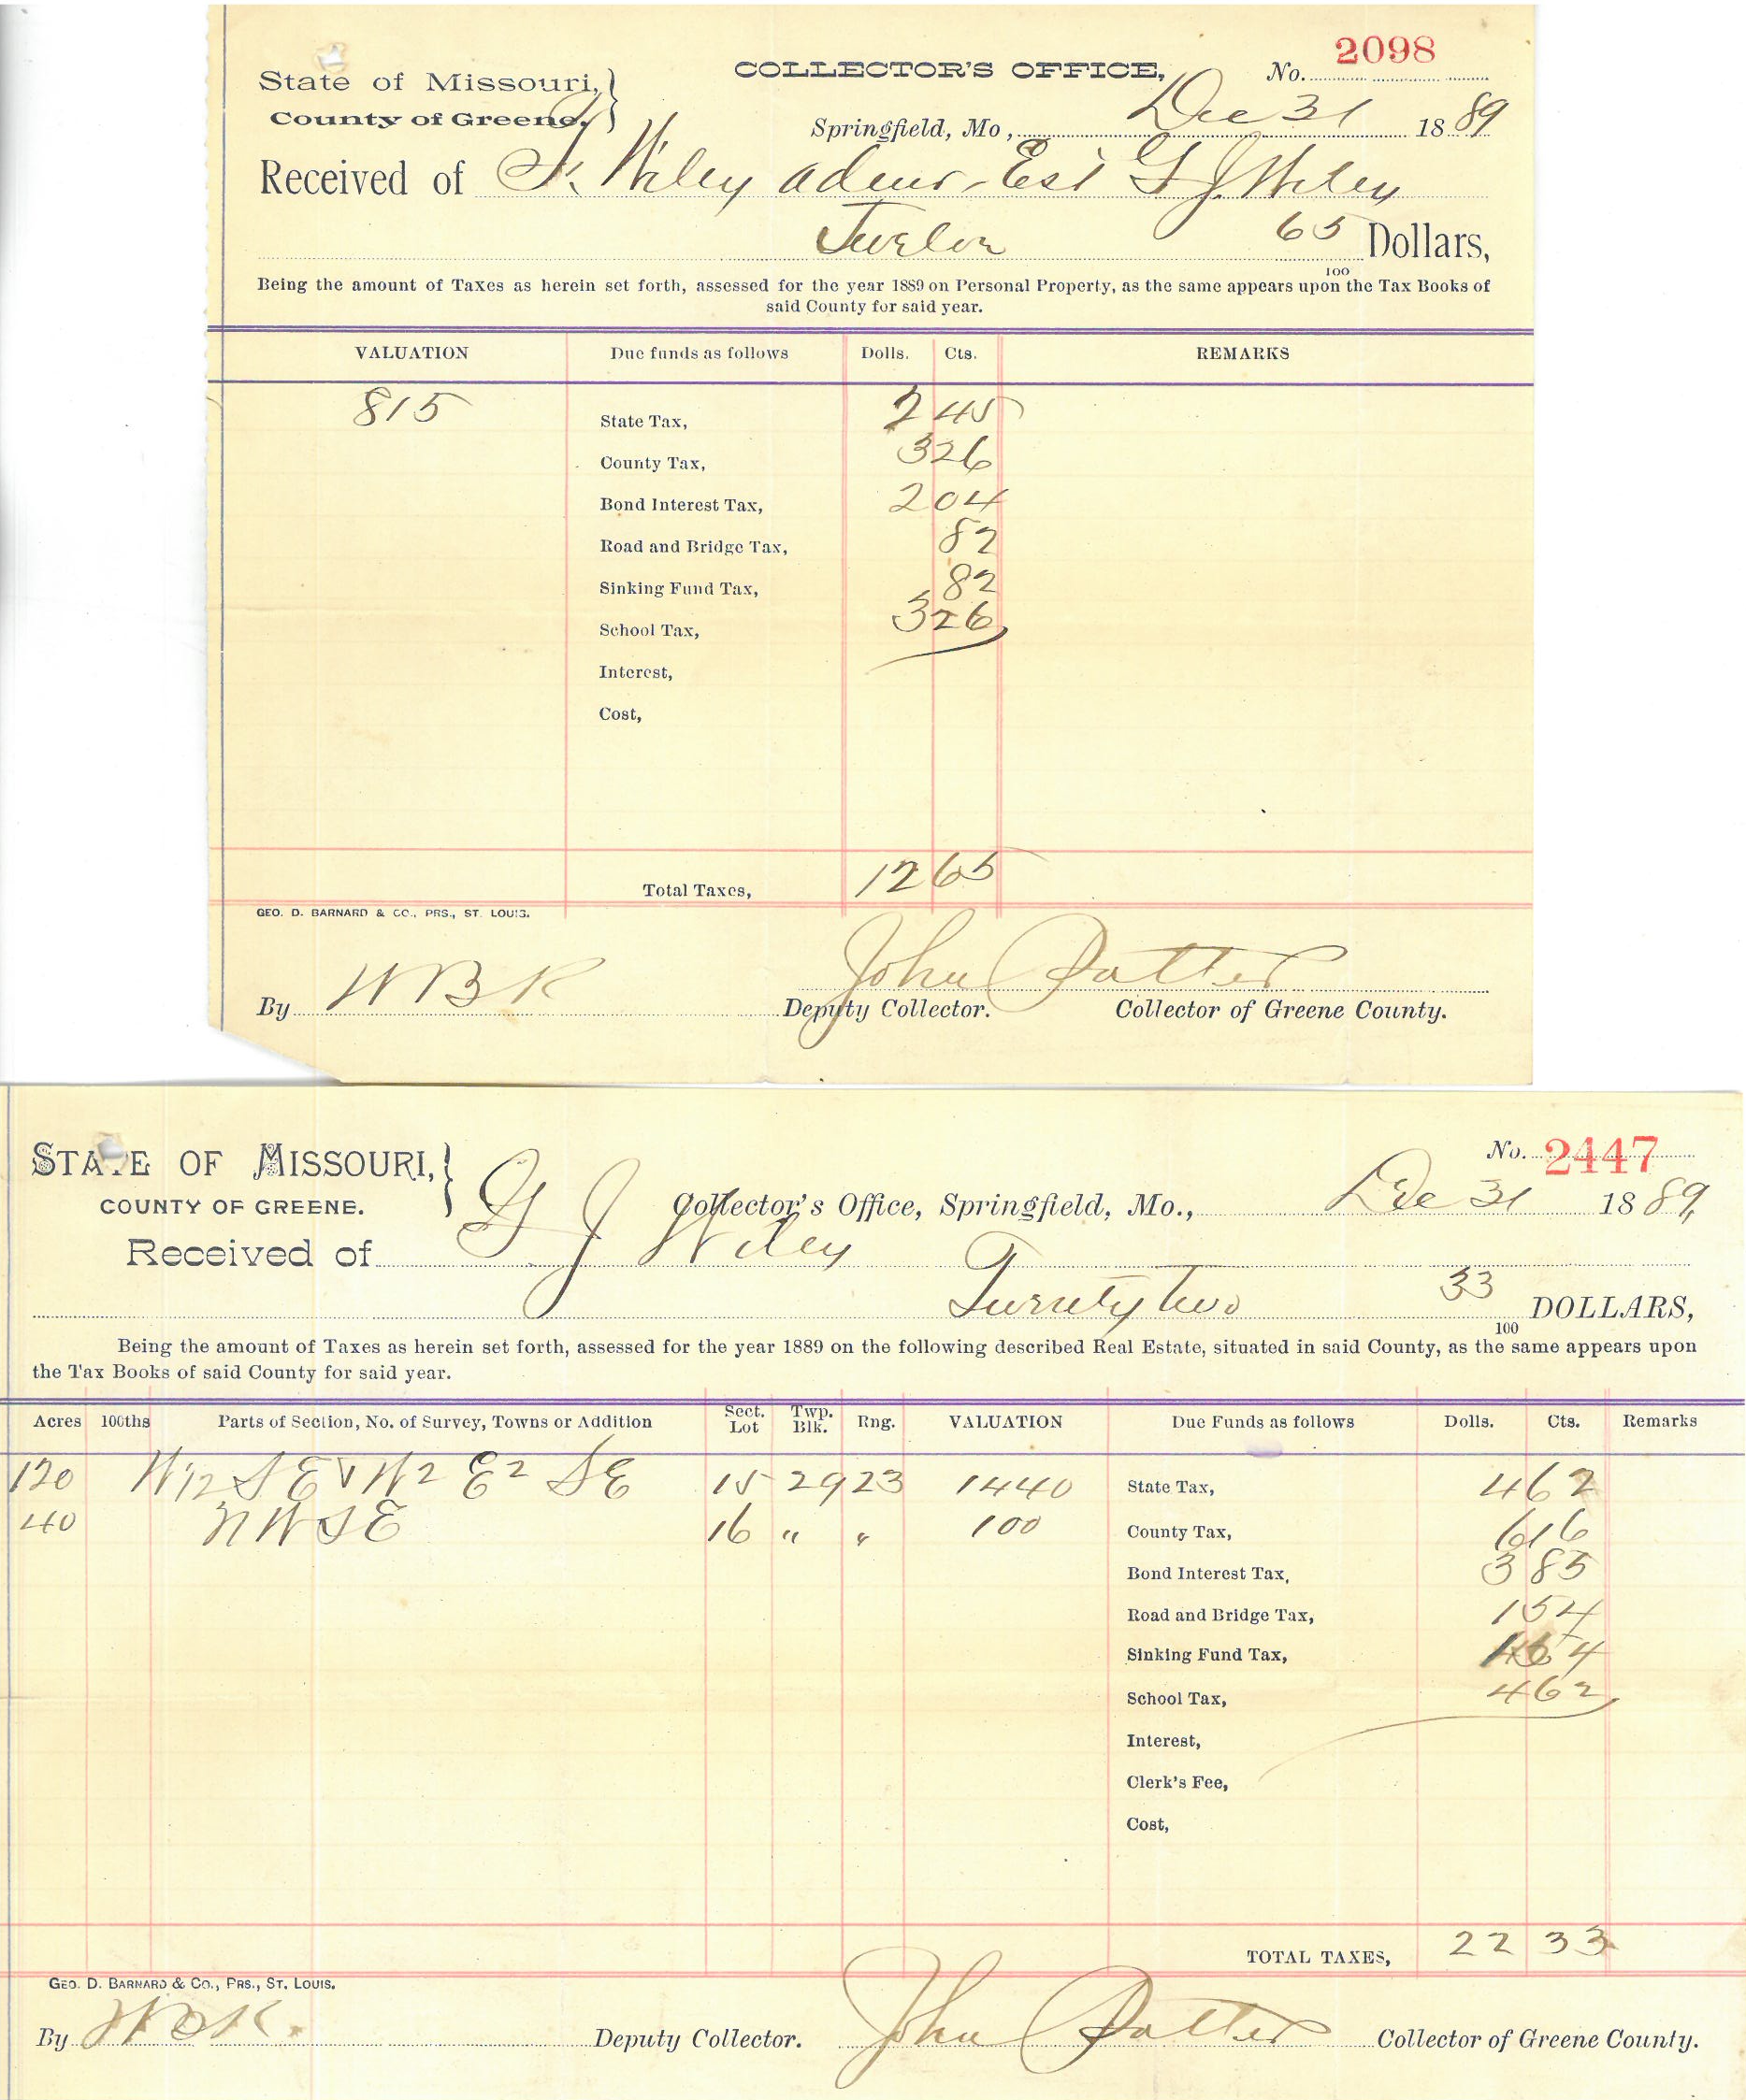 No. 2098
COLLECTOR'S OFFICE,
State of Missouri,
County of Greene.
Springfield, Mo, Dec 31 1889
Received of F. Wiley admr Est G J Wiley
Twelve 65/100 Dollars,
Being the amount of Taxes as herein set forth, assessed for the year 1889 on Personal Property, as the same appears upon the Tax Books of
said County for said year.
VALUATION Due funds as follows Dolls. Cts. REMARKS
815 State Tax, 2 45
County Tax, 3 26
Bond Interest Tax, 2 04
Road and Bridge Tax, 82
Sinking Fund Tax, 82
School Tax, 3 26
Interest,
Cost,
Total Taxes, 12 65
GEO. D. BARNARD & CO., PRS., ST. LOUIS.
John Patter
By W B K Deputy Collector. Collector of Greene County.
No. 2447
STATE OF MISSOURI,
COUNTY OF GREENE.
Collector's Office, Springfield, Mo., Dec 31 1889,
Received of G J Wiley
Twenty two 33/100 DOLLARS,
Being the amount of Taxes as herein set forth, assessed for the year 1889 on the following described Real Estate, situated in said County, as the same appears upon
the Tax Books of said County for said year.
Acres 100ths Parts of Section, No. of Survey, Towns or Addition Sect. Lot Twp. Blk. Rng. VALUATION Due Funds as follows Dolls. Cts. Remarks
120 W12 SE & W2 E2 SE 15 29 23 1440 State Tax, 4 62
40 NW SE 16 " " 100 County Tax, 6 16
Bond Interest Tax, 3 85
Road and Bridge Tax, 1 54
Sinking Fund Tax,
School Tax, 4 62
Interest,
Clerk's Fee,
Cost,
TOTAL TAXES, 22 33
GEO. D. BARNARD & CO., PRS., ST. LOUIS.
By W B K. Deputy Collector. John Patter Collector of Greene County.